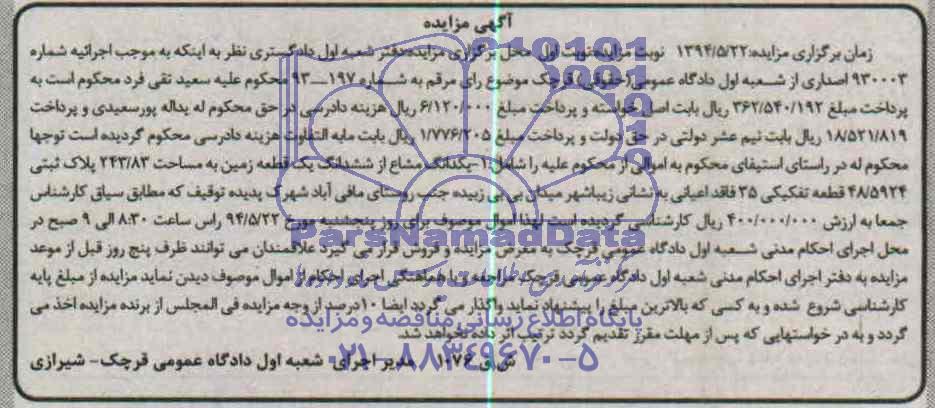 آگهی مزایده
زمان برگزاری مزایده:۱۳۹۴/۵/۲۲ نوبت مزایده:نوبت اول محل برگزاری مزایده:دفتر شعبه اول دادگستری نظر به اینکه به موجب اجرائیه شماره
۹۳۰۰۰۳ اصداری از شعبه اول دادگاه عمومی(حقوقی) قرچک موضوع رای مرقم به شماره ۱۹۷-۹۳ محکوم علیه سعید تقی فرد محکوم است به
پرداخت مبلغ ۳۶۲/۵۴۰/۱۹۲ ریال بابت اصل خواسته و پرداخت مبلغ ۶/۱۲۰/۰۰۰ ریال هزینه دادرسی در حق محکوم له یداله پورسعیدی و پرداخت
۱۸/۵۲۱/۸۱۹ ریال بابت نیم عشر دولتی در حق دولت و پرداخت مبلغ ۱/۷۷۶/۲۰۵ ریال بابت مابه التفاوت هزینه دادرسی محکوم گردیده است توجها
محکوم له در راستای استیفای محکوم به اموالی از محکوم علیه را شامل:۱-یکدانگ مشاع از ششدانگ یک قطعه زمین به مساحت ۲۴۳/۸۳ پلاک ثبتی
۴۸/۵۹۲۴ قطعه تفکیکی ۳۵ فاقد اعیانی به نشانی زیباشهر میدان بی بی زبیده جنب روستای مافی آباد شهرک پدیده توقیف که مطابق سیاق کارشناس
جمعا به ارزش ۴۰۰/۰۰۰/۰۰۰ ریال کارشناسی گردیده است لهذا اموال موصوف برای روز پنجشنبه مورخ ۹۴/۵/۲۲ راس ساعت ۸:۳۰ الی ۹ صبح در
محل اجرای احکام مدنی شعبه اول دادگاه عمومی قرچک به معرض مزایده و فروش قرار می گیرد علاقمندان می توانند ظرف پنج روز قبل از موعد
مزایده به دفتر اجرای احکام مدنی شعبه اول دادگاه عمومی قرچک مراجعه و با هماهنگی اجرای احکام از اموال موصوف دیدن نماید مزایده از مبلغ پایه
کارشناسی شروع شده و به کسی که بالاترین مبلغ را پیشنهاد نماید واگذار می گردد ایضا ۱۰درصد از وجه مزایده فی المجلس از برنده مزایده اخذ می
گردد و به در خواستهایی که پس از مهلت مقرر تقدیم گردد ترتیب اثر داده نخواهد شد.
ش/ق ۱۰۷۶ مدیر اجرای شعبه اول دادگاه عمومی قرچک- شیرازی
ParsNamadData
پایگاه اطلاع رسانی مناقصه و مزایده
۰۲۱-۸۸۳۴۹۶۷۰-۵